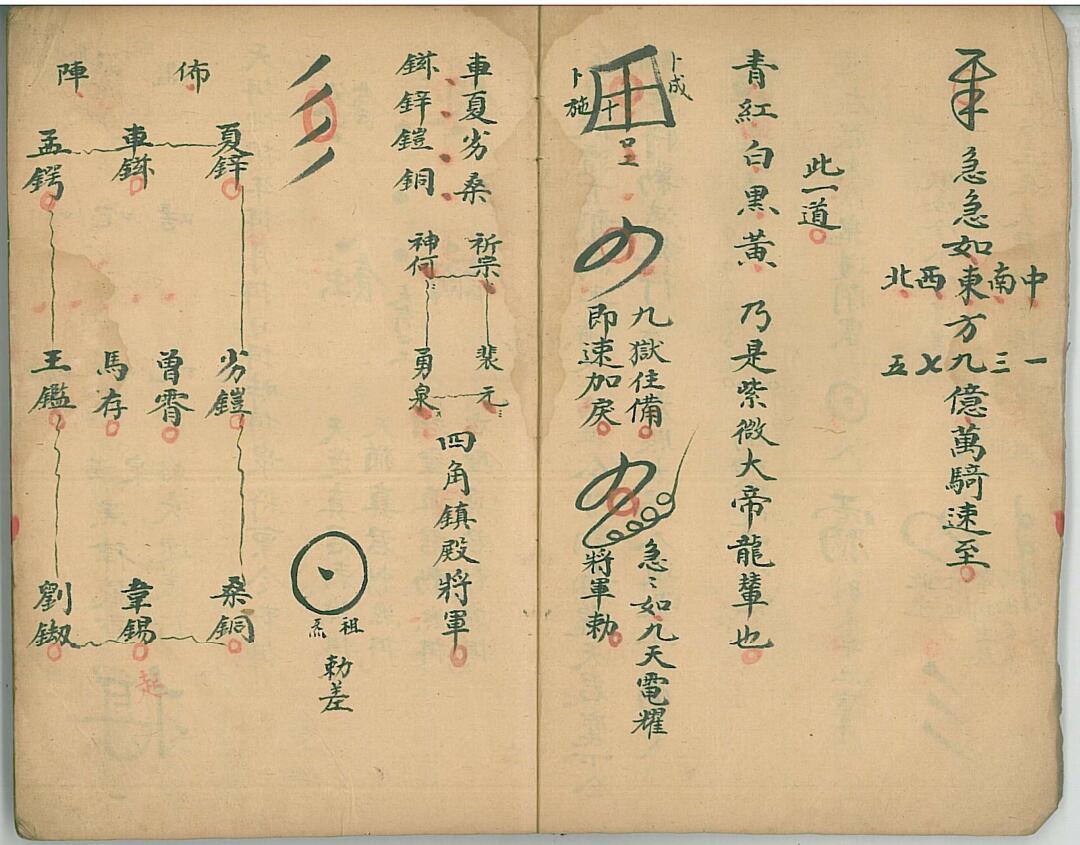 急急如東方九億萬騎速至
中南 西北
一三 七五
此一道
青紅白黒黃 乃是紫微大帝龍輦也
卜成
卜施
九獄住備
即速加戾
急〻如九天電耀
將軍勅
車夏劣桑
鉘鋅鎧銅
祈宗 裴元
神何 勇泉
四角鎮殿將軍
祖炁
勅差
佈陣
夏鋅 劣鎧 桑銅
車鉘 曾霄 韋錫 起
馬存
孟鍔 王鑑 劉